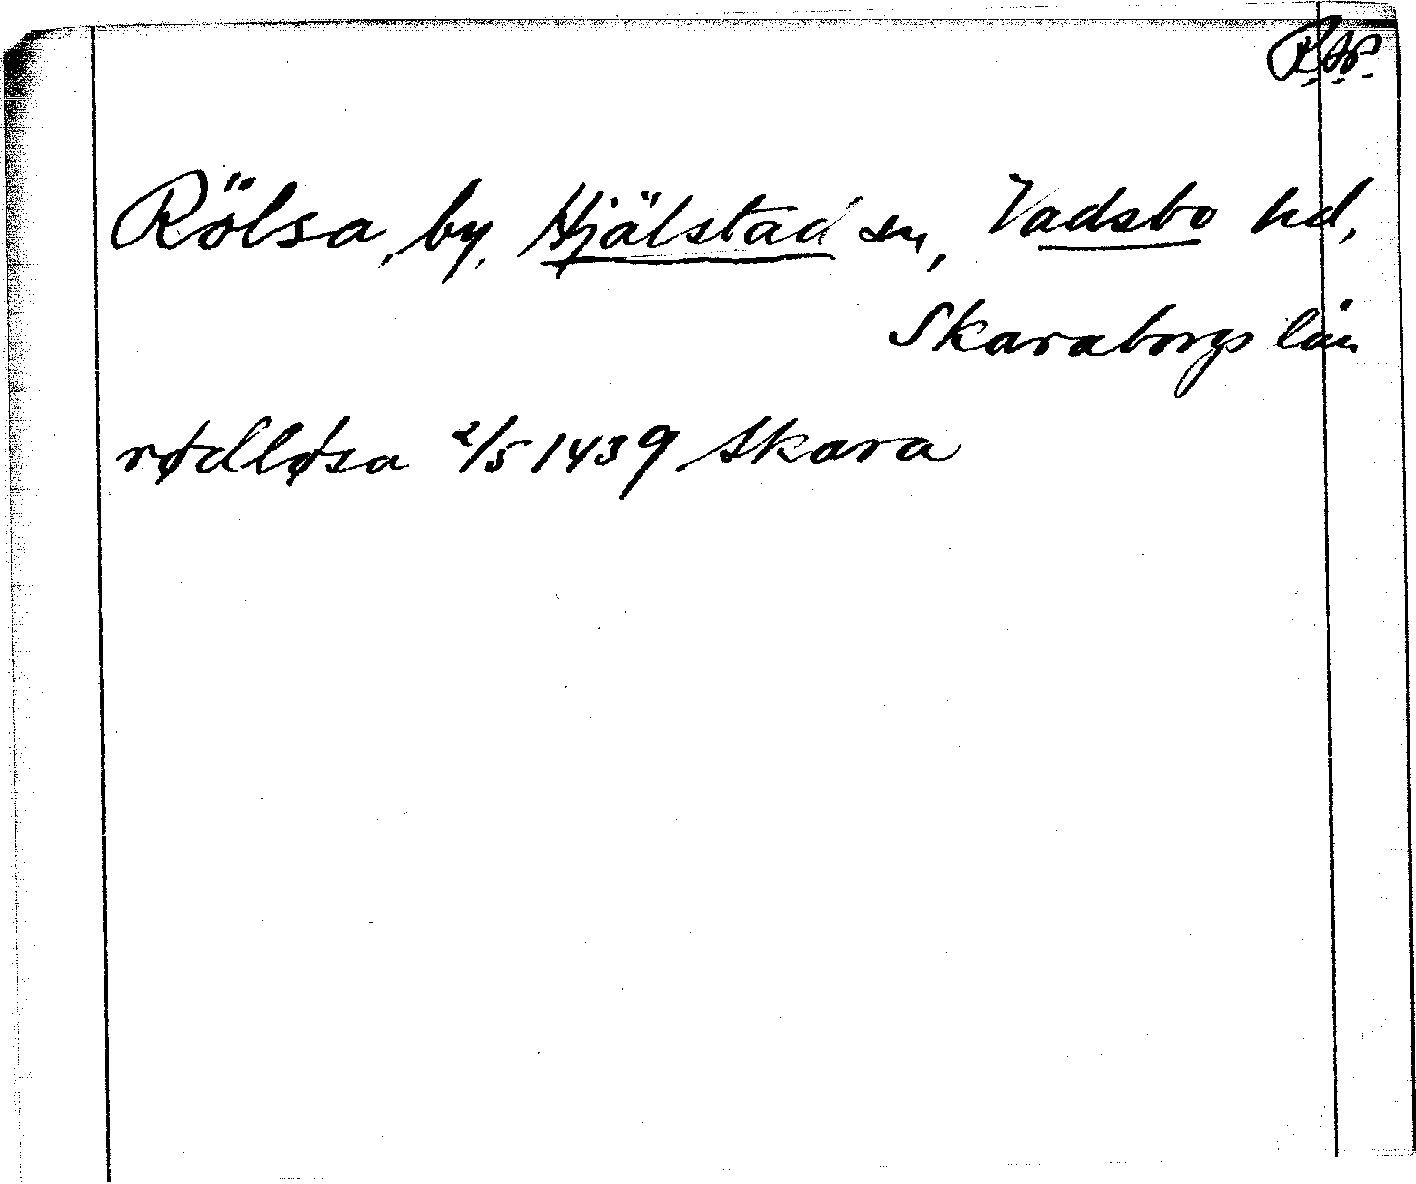 RAP.
Rölsa, by, Hjälstad sn, Vadsbo hd,
Skaraborgs län
rødløsa 2/5 1439 Skara